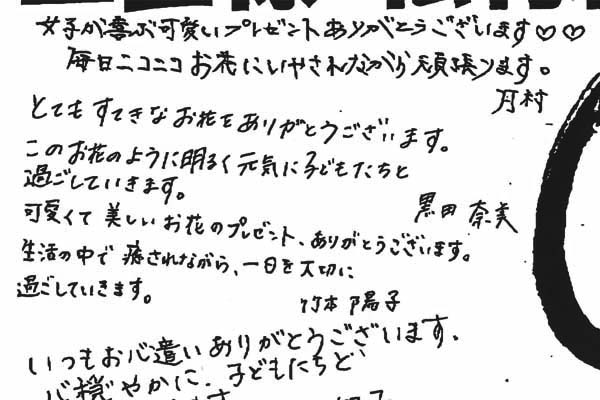 女子が喜ぶ可愛いプレゼントありがとうございます♡♡
毎日ニコニコお花にいやされながら頑張ります。
月村
とてもすてきなお花をありがとうございます。
このお花のように明るく元気に子どもたちと
過ごしていきます。
黒田 奈美
可愛くて美しいお花のプレゼント、ありがとうございます。
生活の中で癒されながら、一日を大切に
過ごしていきます。
竹本 陽子
いつもお心遣いありがとうございます。
心穏やかに、子どもたちと